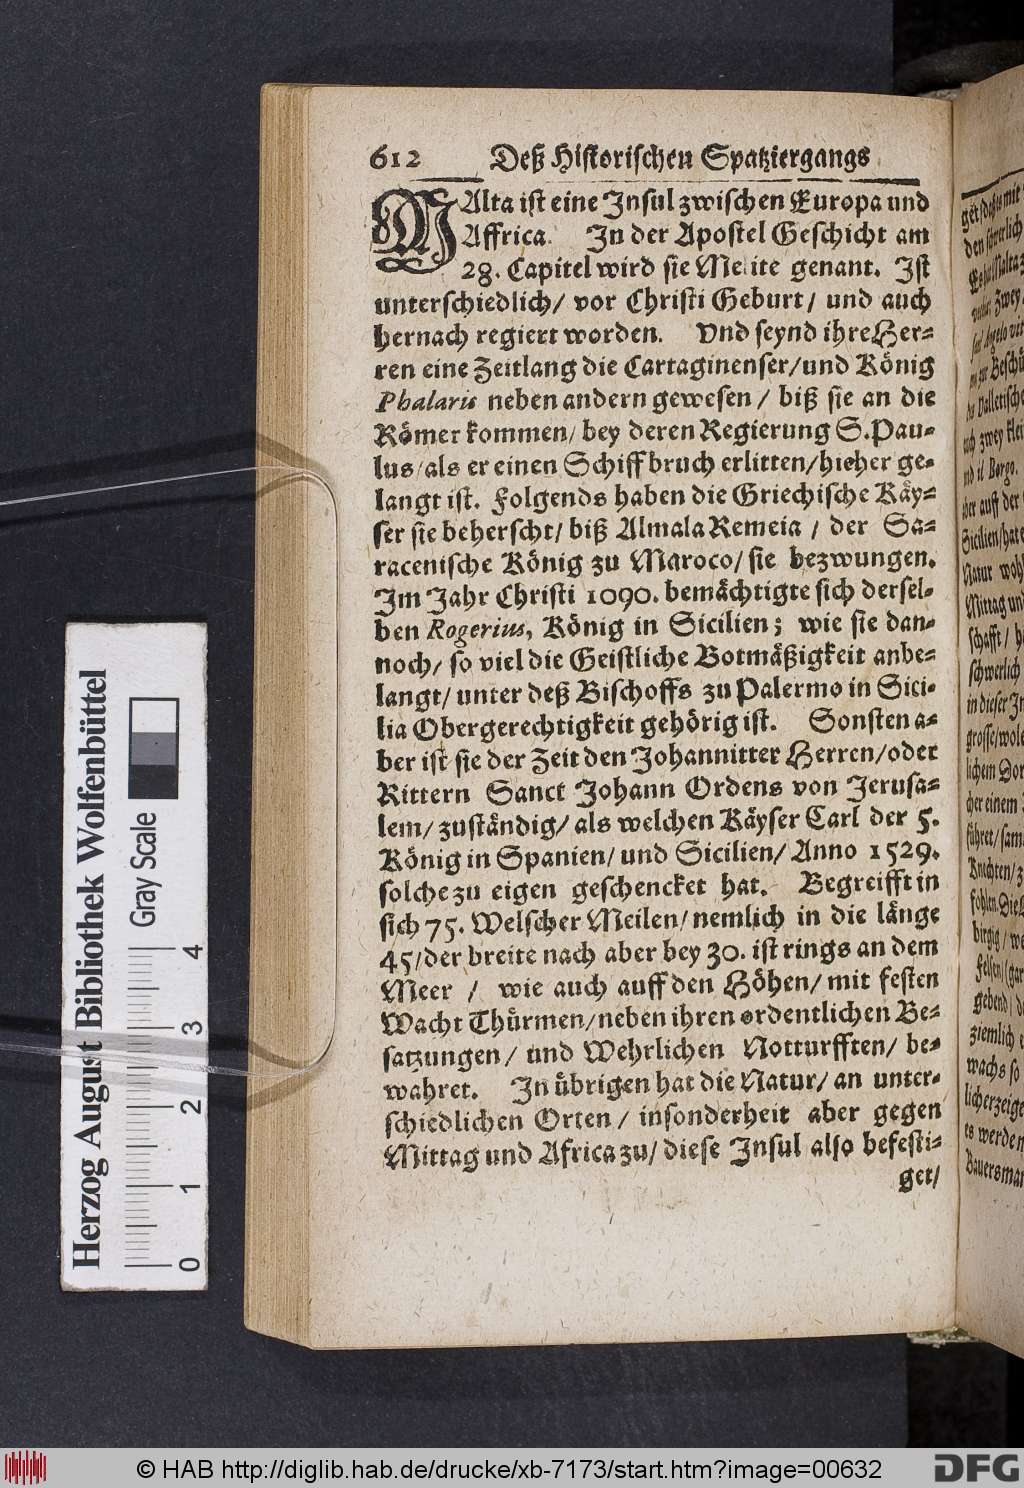 612 Deß Historischen Spatziergangs
MAlta ist eine Insul zwischen Europa und
Affrica. In der Apostel Geschicht am
28. Capitel wird sie Melite genant. Ist
unterschiedlich/ vor Christi Geburt/ und auch
hernach regiert worden. Vnd seynd ihre Her-
ren eine Zeitlang die Cartaginenser/und König
Phalaris neben andern gewesen/ biß sie an die
Römer kommen/ bey deren Regierung S.Pau-
lus/als er einen Schiffbruch erlitten/hieher ge-
langt ist. Folgends haben die Griechische Käy-
ser sie beherscht/ biß Almala Remeia/ der Sa-
racenische König zu Maroco/ sie bezwungen.
Im Jahr Christi 1090. bemächtigte sich dersel-
ben Rogerius, König in Sicilien; wie sie dan-
noch/ so viel die Geistliche Botmäßigkeit anbe-
langt/ unter deß Bischoffs zu Palermo in Sici-
lia Obergerechtigkeit gehörig ist. Sonsten a-
ber ist sie der Zeit den Johannitter Herren/oder
Rittern Sanct Johann Ordens von Jerusa-
lem/ zuständig/ als welchen Käyser Carl der 5.
König in Spanien/ und Sicilien/ Anno 1529.
solche zu eigen geschencket hat. Begreifft in
sich 75. Welscher Meilen/ nemlich in die länge
45/der breite nach aber bey 30. ist rings an dem
Meer / wie auch auff den Höhen/ mit festen
Wacht Thürmen/neben ihren ordentlichen Be-
satzungen/ und Wehrlichen Notturfften/ be-
wahret. In übrigen hat die Natur/ an unter-
schiedlichen Orten/ insonderheit aber gegen
Mittag und Africa zu/ diese Insul also befesti-
get/
Herzog August Bibliothek Wolfenbüttel
Gray Scale
0 1 2 3 4
© HAB http://diglib.hab.de/drucke/xb-7173/start.htm?image=00632
DFG